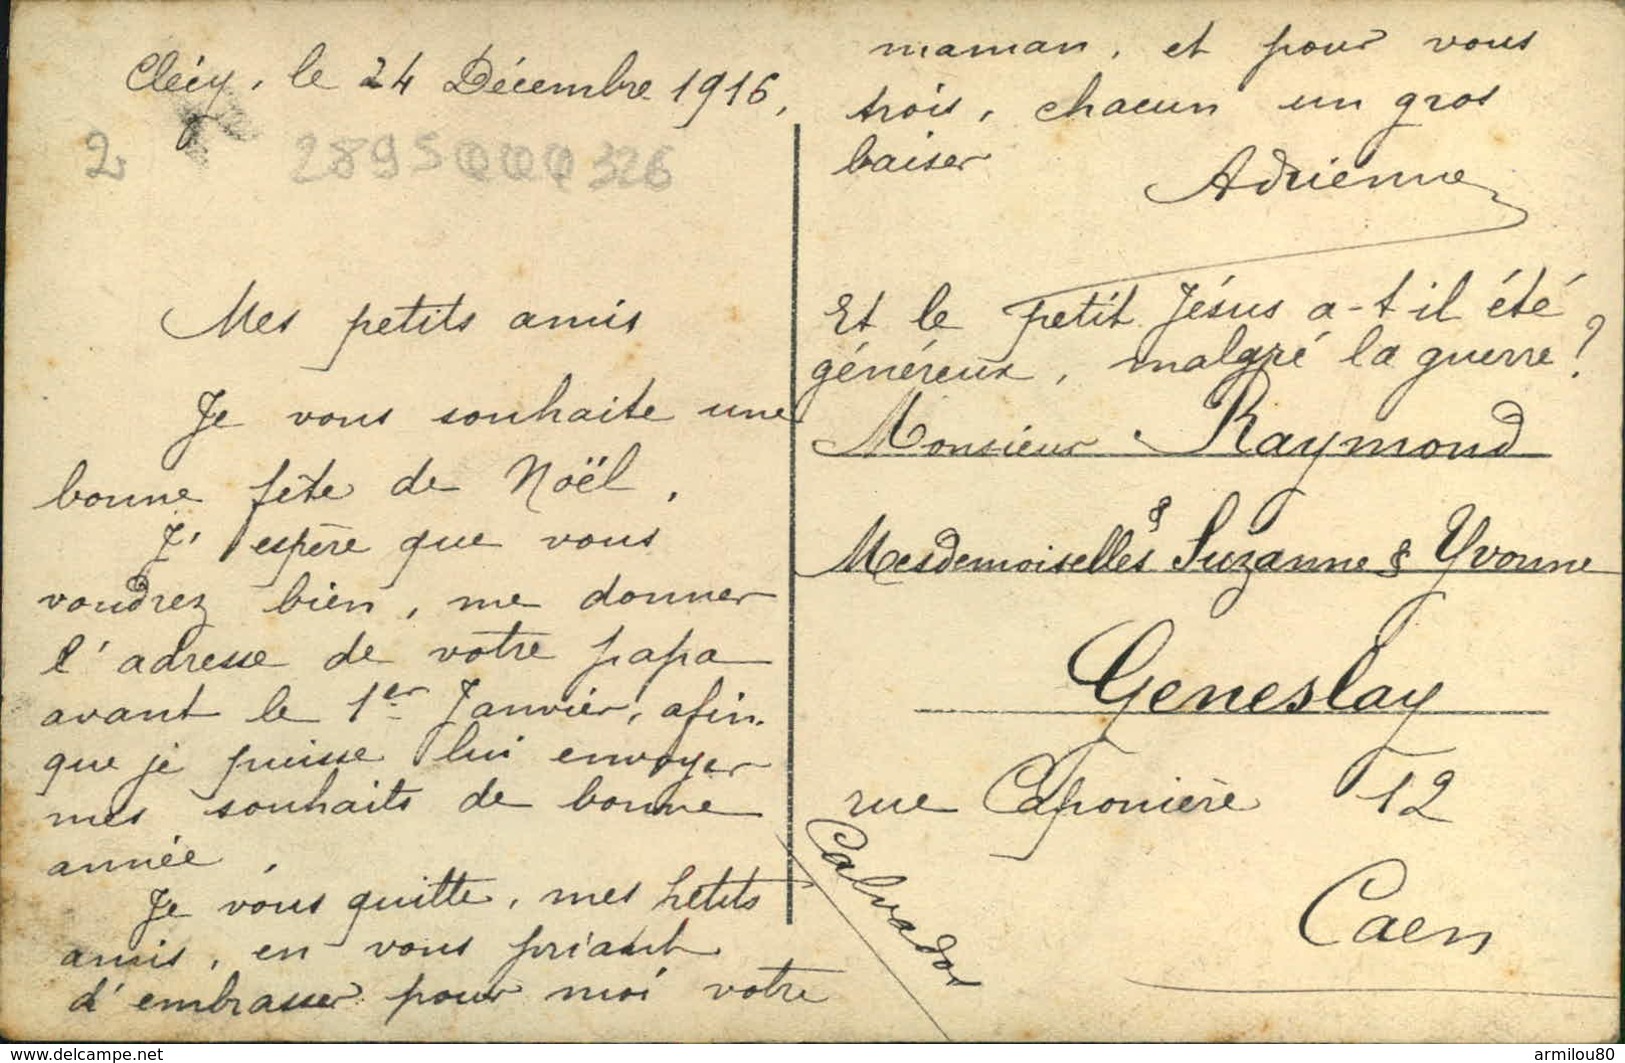 Clécy, le 24 Décembre 1916,
2
2895 000 326
Mes petits amis
Je vous souhaite une
bonne fête de Noël,
J'espère que vous
voudrez bien, me donner
l'adresse de votre papa
avant le 1er Janvier, afin
que je puisse lui envoyer
mes souhaits de bonne
année,
Je vous quitte, mes petits
amis, en vous priant
d'embrasser pour moi votre
maman, et pour vous
trois, chacun un gros
baiser
Adrienne
Et le petit Jésus a-t-il été
généreux, malgré la guerre?
Monsieur Raymond
&
Mesdemoiselles Suzanne & Yvonne
Geneslay
rue Caponière 12
Caen
Calvados
https://www.delcampe.net
armilou80